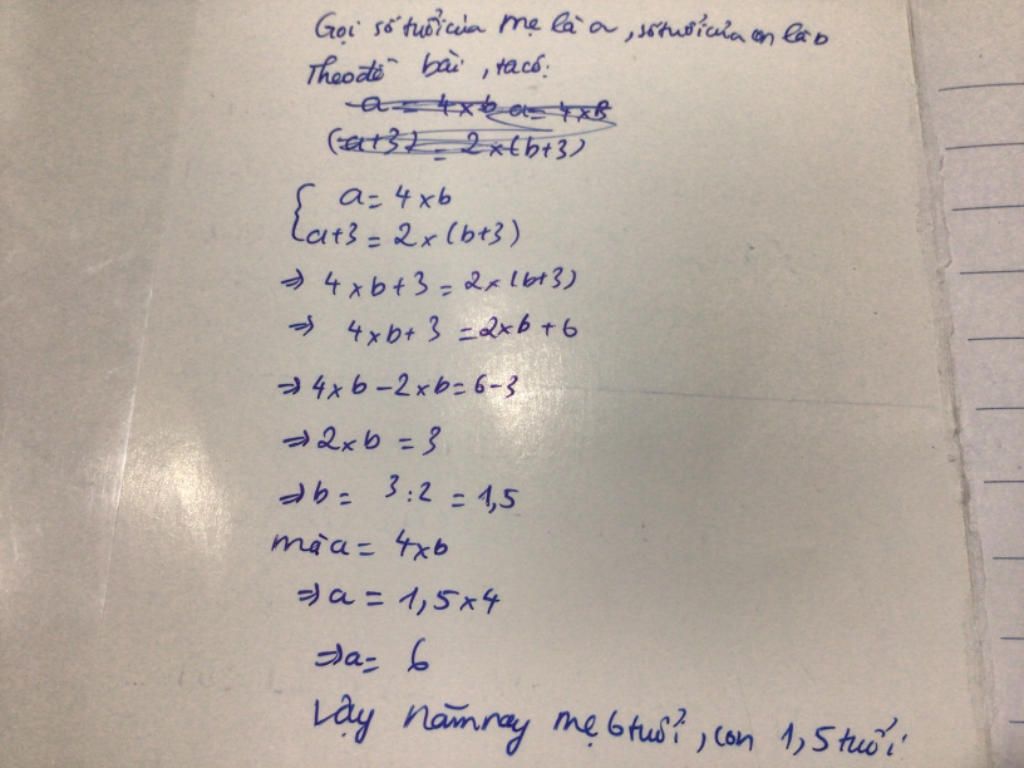 Gọi số tuổi của mẹ là a, số tuổi của con là b
Theo đề bài, ta có:
a = 4 x b a = 4 x B
(a+3) = 2 x (b+3)
{ a = 4 x b
a+3 = 2 x (b+3)
⇒ 4 x b + 3 = 2 x (b+3)
⇒ 4 x b + 3 = 2 x b + 6
⇒ 4 x b - 2 x b = 6 - 3
⇒ 2 x b = 3
⇒ b = 3 : 2 = 1,5
mà a = 4 x b
⇒ a = 1,5 x 4
⇒ a = 6
Vậy năm nay mẹ 6 tuổi, con 1,5 tuổi